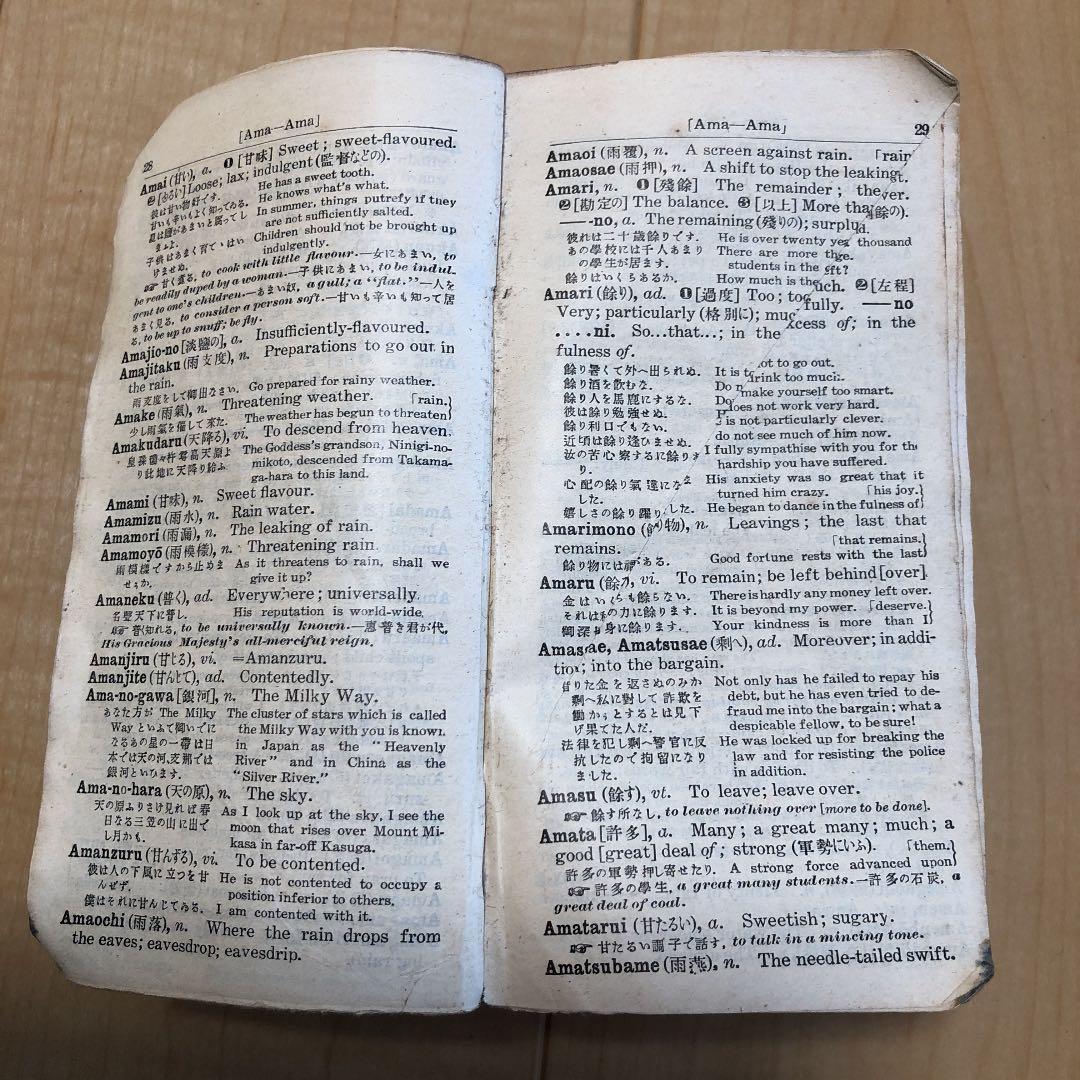 28
[Ama—Ama]
Amai (甘い), a. ❶ [甘味] Sweet; sweet-flavoured.
❷ [ゆるい] Loose; lax; indulgent (監督などの).
彼は甘い物好です。 He has a sweet tooth.
甘いも辛いもよく知ってゐる。 He knows what's what.
夏は鹽があまいと腐ってしまふよ。 In summer, things putrefy if they are not sufficiently salted.
子供はあまく育てゝはいけませぬ。 Children should not be brought up indulgently.
☞ 甘く煮る, to cook with little flavour.—女にあまい, to
be readily duped by a woman.—子供にあまい, to be indul-
gent to one's children.—あまい奴, a gull; a "flat."—人を
あまく見る, to consider a person soft.—甘いも辛いも知って居
る, to be up to snuff; be fly.
Amajio-no [淡鹽の], a. Insufficiently-flavoured.
Amajitaku (雨支度), n. Preparations to go out in
the rain.
雨支度をして御出なさい. Go prepared for rainy weather.
Amake (雨氣), n. Threatening weather. 「rain.}
少し雨氣を催して來た. The weather has begun to threaten
Amakudaru (天降る), vi. To descend from heaven.
皇孫瓊々杵尊高天原より此地に天降り給ふ The Goddess's grandson, Ninigi-no-
mikoto, descended from Takama-
ga-hara to this land.
Amami (甘味), n. Sweet flavour.
Amamizu (雨水), n. Rain water.
Amamori (雨漏), n. The leaking of rain.
Amamoyō (雨模樣), n. Threatening rain.
雨模樣ですから止めませうか. As it threatens to rain, shall we
give it up?
Amaneku (普く), ad. Everywhere; universally.
名聲天下に普し. His reputation is world-wide.
☞ 普く知れる, to be universally known.—惠普き君が代,
His Gracious Majesty's all-merciful reign.
Amanjiru (甘じる), vi. =Amanzuru.
Amanjite (甘んじて), ad. Contentedly.
Ama-no-gawa [銀河], n. The Milky Way.
あなた方が The Milky The cluster of stars which is called
Way といふて御いでに the Milky Way with you is known
なるあの星の一帶は日 in Japan as the "Heavenly
本では天の河、支那では River" and in China as the
銀河といひます。 "Silver River."
Ama-no-hara (天の原), n. The sky.
天の原ふりさけ見れば春 As I look up at the sky, I see the
日なる三笠の山に出で moon that rises over Mount Mi-
し月かも. kasa in far-off Kasuga.
Amanzuru (甘んずる), vi. To be contented.
彼は人の下風に立つを甘 He is not contented to occupy a
んぜず. position inferior to others.
僕はそれに甘んじてゐる. I am contented with it.
Amaochi (雨落), n. Where the rain drops from
the eaves; eavesdrop; eavesdrip.
[Ama—Ama]
29
Amaoi (雨覆), n. A screen against rain. 「rain
Amaosae (雨押), n. A shift to stop the leaking
Amari, n. ❶ [殘餘] The remainder; the
❷ [勘定の] The balance. ❸ [以上] More tha
—no, a. The remaining (殘りの); surplu
彼れは二十歳餘りです. He is over twenty ye
あの學校には千人あまり There are more tha
の學生が居ます. students in the
餘りはいくらあるか. How much is the
Amari (餘り), ad. ❶ [過度] Too; too ❷ [左程]
Very; particularly (格別に); muc fully. —no
....ni. So...that...; in the excess of; in the
fulness of.
餘り暑くて外へ出られぬ. It is t ot to go out.
餘り酒を飮むな. Do n drink too much.
餘り人を馬鹿にするな. Do make yourself too smart.
彼は餘り勉強せぬ. does not work very hard.
餘り利口でもない. is not particularly clever.
近頃は餘り逢ひませぬ. do not see much of him now.
汝の苦心察するに餘りす I fully sympathise with you for the
り. hardship you have suffered.
心配の餘り氣違になま His anxiety was so great that it
した. turned him crazy. 「his joy.}
嬉しさの餘り躍りした. He began to dance in the fulness of
Amarimono (餘り物), n. Leavings; the last that
remains. 「that remains.}
餘り物には福がある. Good fortune rests with the last
Amaru (餘る), vi. To remain; be left behind [over].
金はいくらも餘らない. There is hardly any money left over.
それは私の力に餘ります. It is beyond my power. 「deserve.}
御深切身に餘ります. Your kindness is more than I
Amassae, Amatsusae (剩へ), ad. Moreover; in addi-
tion; into the bargain.
借りた金を返さぬのみか Not only has he failed to repay his
剩へ私に對して詐欺を debt, but he has even tried to de-
働かうとするとは見下 fraud me into the bargain; what a
げ果てた人だ. despicable fellow, to be sure!
法律を犯し剩へ警官に反 He was locked up for breaking the
抗したので拘留になり law and for resisting the police
ました. in addition.
Amasu (餘す), vt. To leave; leave over.
☞ 餘す所なし, to leave nothing over [more to be done].
Amata [許多], a. Many; a great many; much; a
good [great] deal of; strong (軍勢にいふ). 「them.}
許多の軍勢押し寄せたり. A strong force advanced upon
☞ 許多の學生, a great many students.—許多の石炭, a
great deal of coal.
Amatarui (甘たるい), a. Sweetish; sugary.
☞ 甘たるい調子で話す, to talk in a mincing tone.
Amatsubame (雨燕), n. The needle-tailed swift.